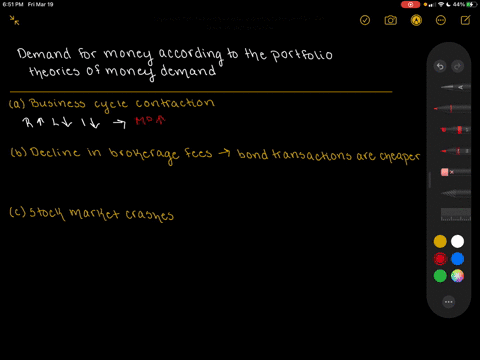 6:51 PM Fri Mar 19
44%
Demand for money according to the portfolio
theories of money demand
(a) Business cycle contraction
R↑ L↓ I↓ → Mᴰ↑
(b) Decline in brokerage fees → bond transactions are cheaper
(c) Stock market crashes